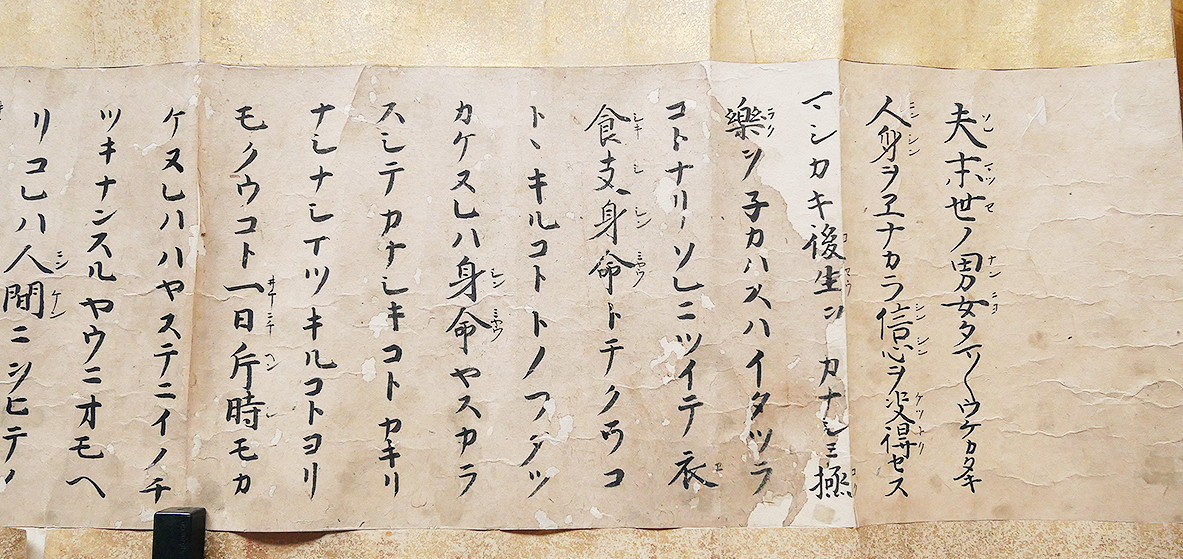 夫末世ノ男女タマ〱ウケカタキ
人身ヲヱナカラ信心ヲ決得セス
マシカキ後生ヲカナシミ極
樂ヲ子カハスハイタツラ
コトナリソレニツイテ衣
食支身命トテクウコ
トヽキルコトトノフタツ
カケヌレハ身命ヤスカラ
スシテカナシキコトカキリ
ナシナシイツキルコトヨリ
モクウコト一日斤時モカ
ケヌレハハヤステニイノチ
ツキナンスルヤウニオモヘ
リコレハ人間ニシヒテノ